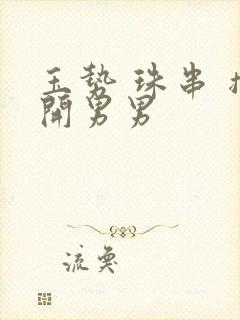 玉势 珠串 扩
開男男
流奂